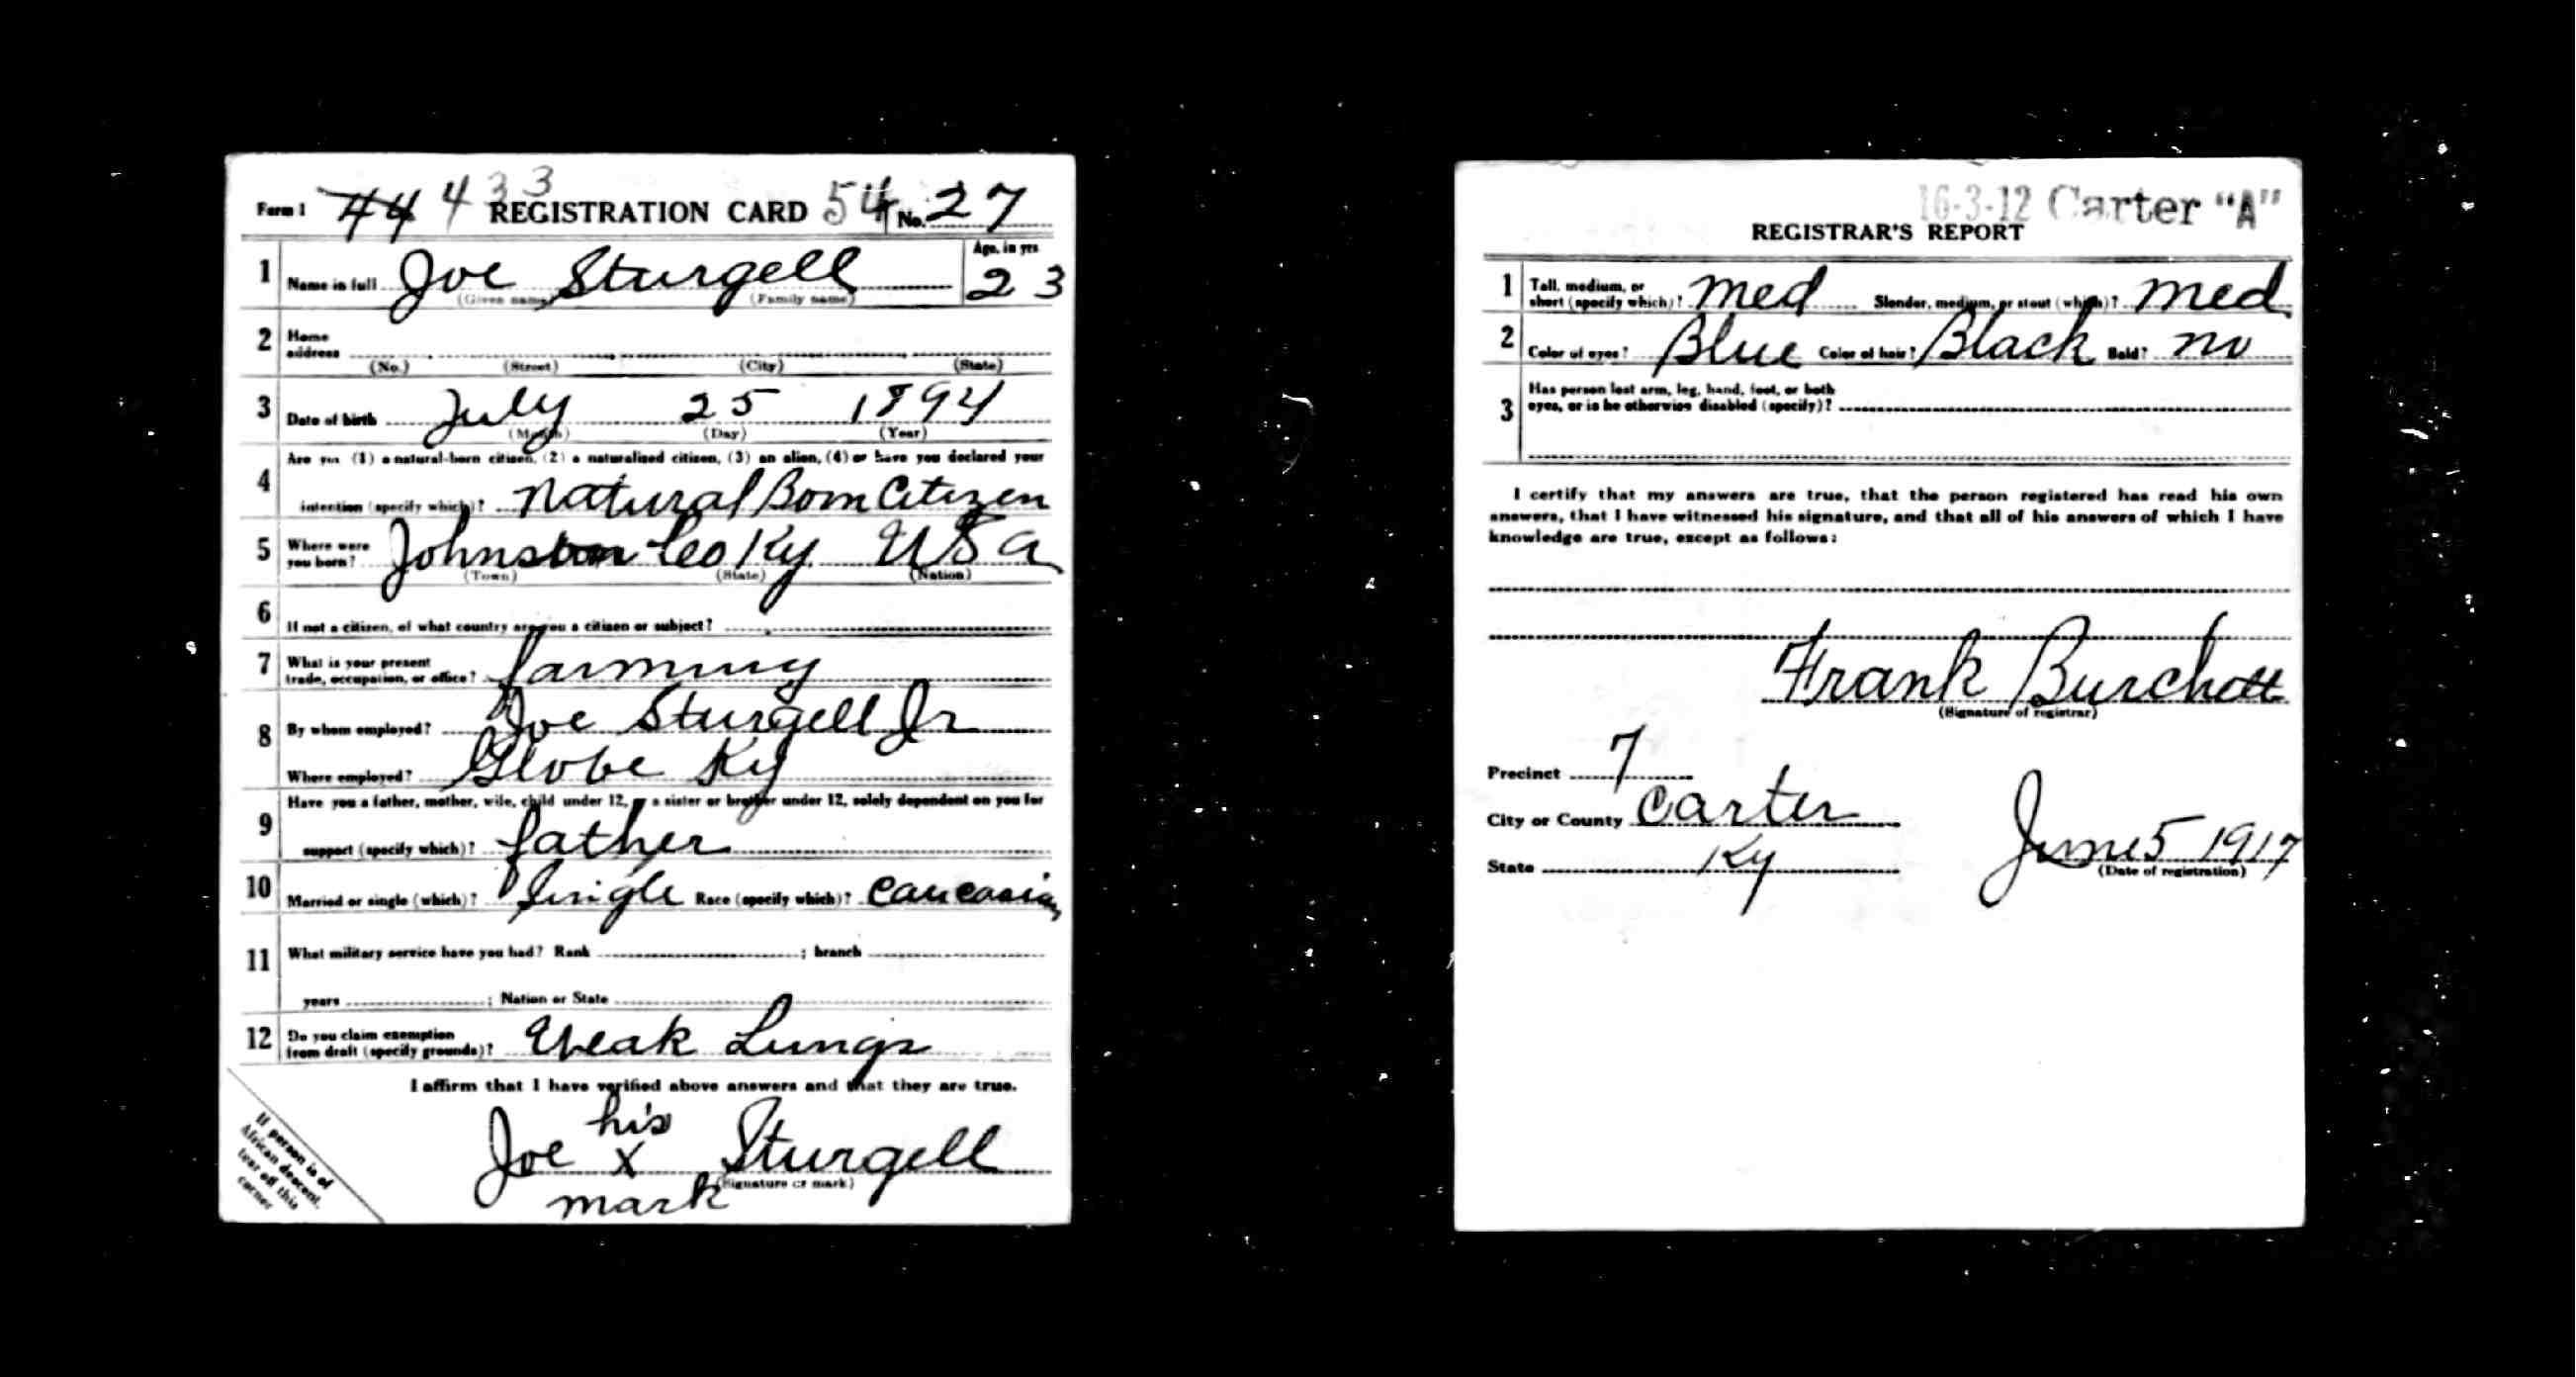 33
Form 1 44 4 REGISTRATION CARD 54 No. 27
1 Name in full Joe Sturgell Age, in yrs 23
(Given name) (Family name)
2 Home address
(No.) (Street) (City) (State)
3 Date of birth July 25 1894
(Month) (Day) (Year)
4 Are you (1) a natural-born citizen, (2) a naturalized citizen, (3) an alien, (4) or have you declared your
intention (specify which)? Natural Born Citizen
5 Where were you born? Johnston Co Ky. USA
(Town) (State) (Nation)
6 If not a citizen, of what country are you a citizen or subject?
7 What is your present trade, occupation, or office? farming
8 By whom employed? Joe Sturgell Jr
Where employed? Globe Ky
9 Have you a father, mother, wife, child under 12, or a sister or brother under 12, solely dependent on you for
support (specify which)? father
10 Married or single (which)? Single Race (specify which)? Caucasian
11 What military service have you had? Rank ; branch
years ; Nation or State
12 Do you claim exemption from draft (specify grounds)? Weak Lungs
I affirm that I have verified above answers and that they are true.
his
Joe X Sturgell
(Signature or mark)
mark
If person is of
African descent,
tear off this
corner
16-3-12 Carter "A"
REGISTRAR'S REPORT
1 Tall, medium, or short (specify which)? med Slender, medium, or stout (which)? med
2 Color of eyes? Blue Color of hair? Black Bald? no
3 Has person lost arm, leg, hand, foot, or both
eyes, or is he otherwise disabled (specify)?
I certify that my answers are true, that the person registered has read his own
answers, that I have witnessed his signature, and that all of his answers of which I have
knowledge are true, except as follows:
Frank Burchett
(Signature of registrar)
Precinct 7
City or County Carter
State Ky
June 5 1917
(Date of registration)